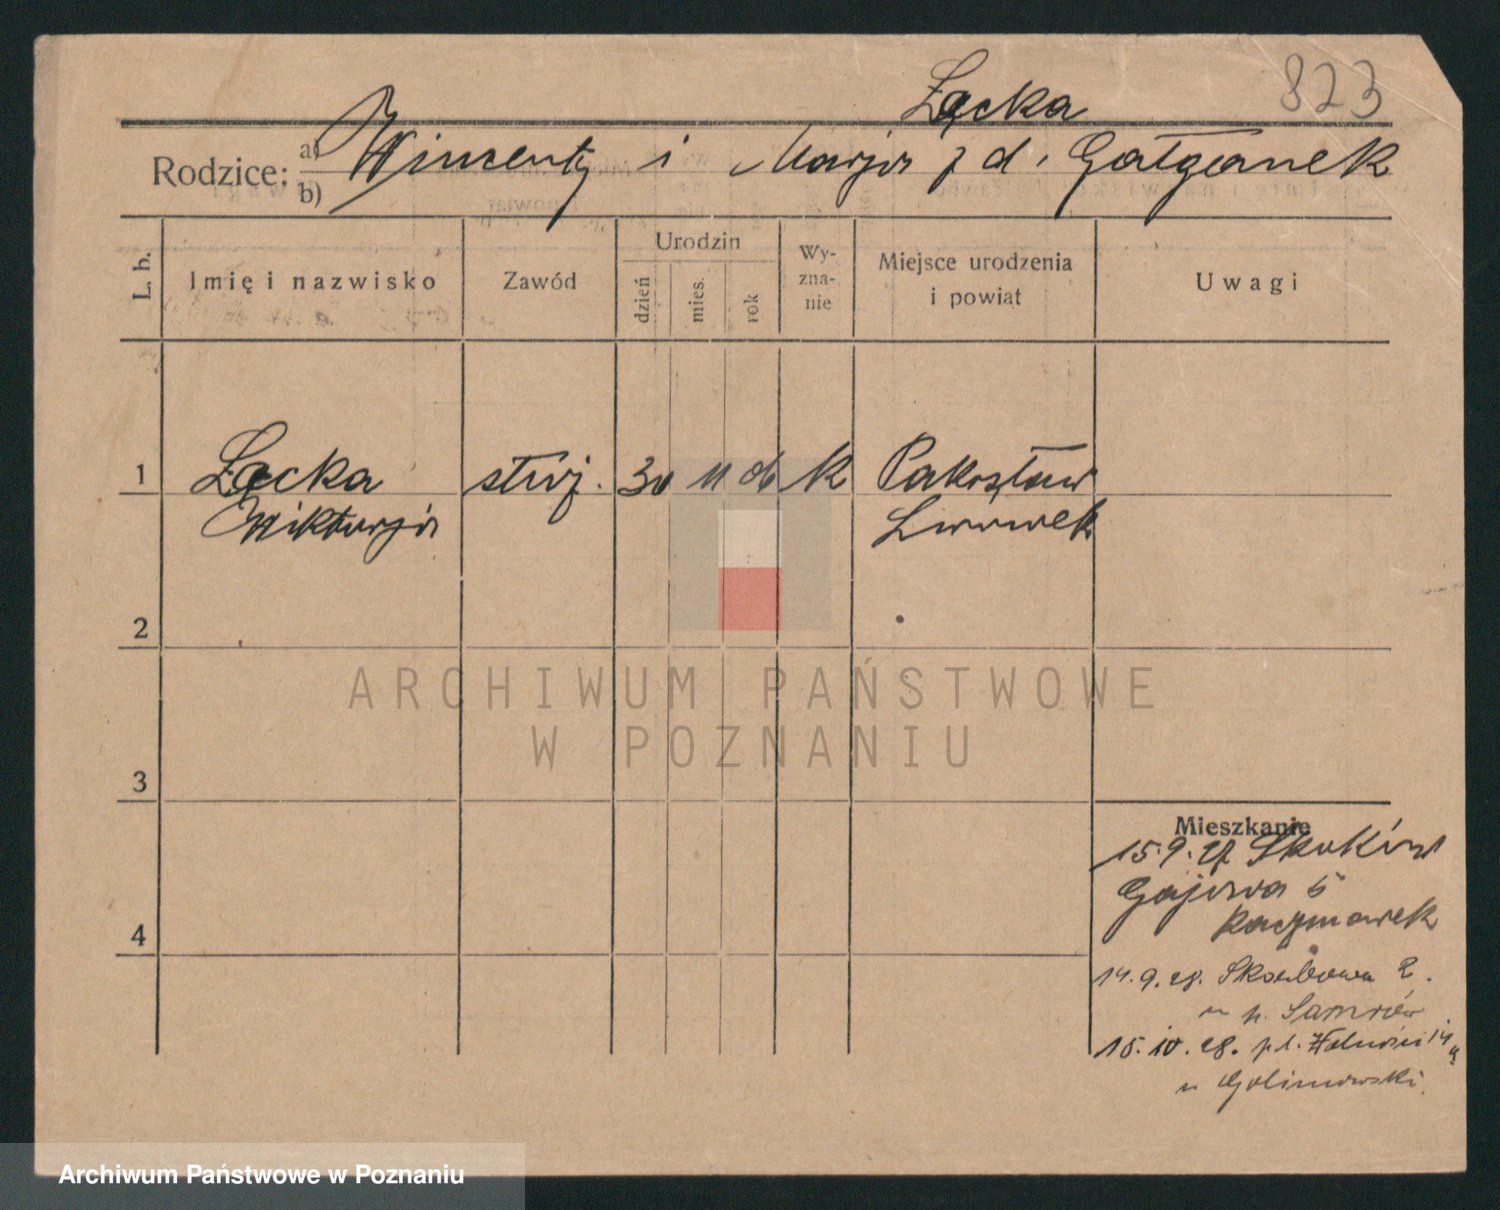 Łącka 823
Rodzice: a) b) Wincenty i Marja z d. Gałganek
L. b. Imię i nazwisko Zawód Urodzin dzień mies. rok Wy-zna-nie Miejsce urodzenia i powiat Uwagi
1 Łącka służ. 30 11 06 k Pakosław
Wiktorja Lwówek
2
ARCHIWUM PAŃSTWOWE
W POZNANIU
3
Mieszkanie
15.9.27 Skoków
Gajowa 5
Kaczmarek
4
14.9.28. Skarbowa 2.
u p.
15.10.28. pl. Wolności 14a
u Golimowski
Archiwum Państwowe w Poznaniu